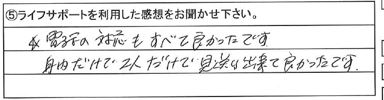 ⑤ライフサポートを利用した感想をお聞かせ下さい。
電話の対応もすべて良かったです
身内だけで2人だけで見送り出来て良かったです.